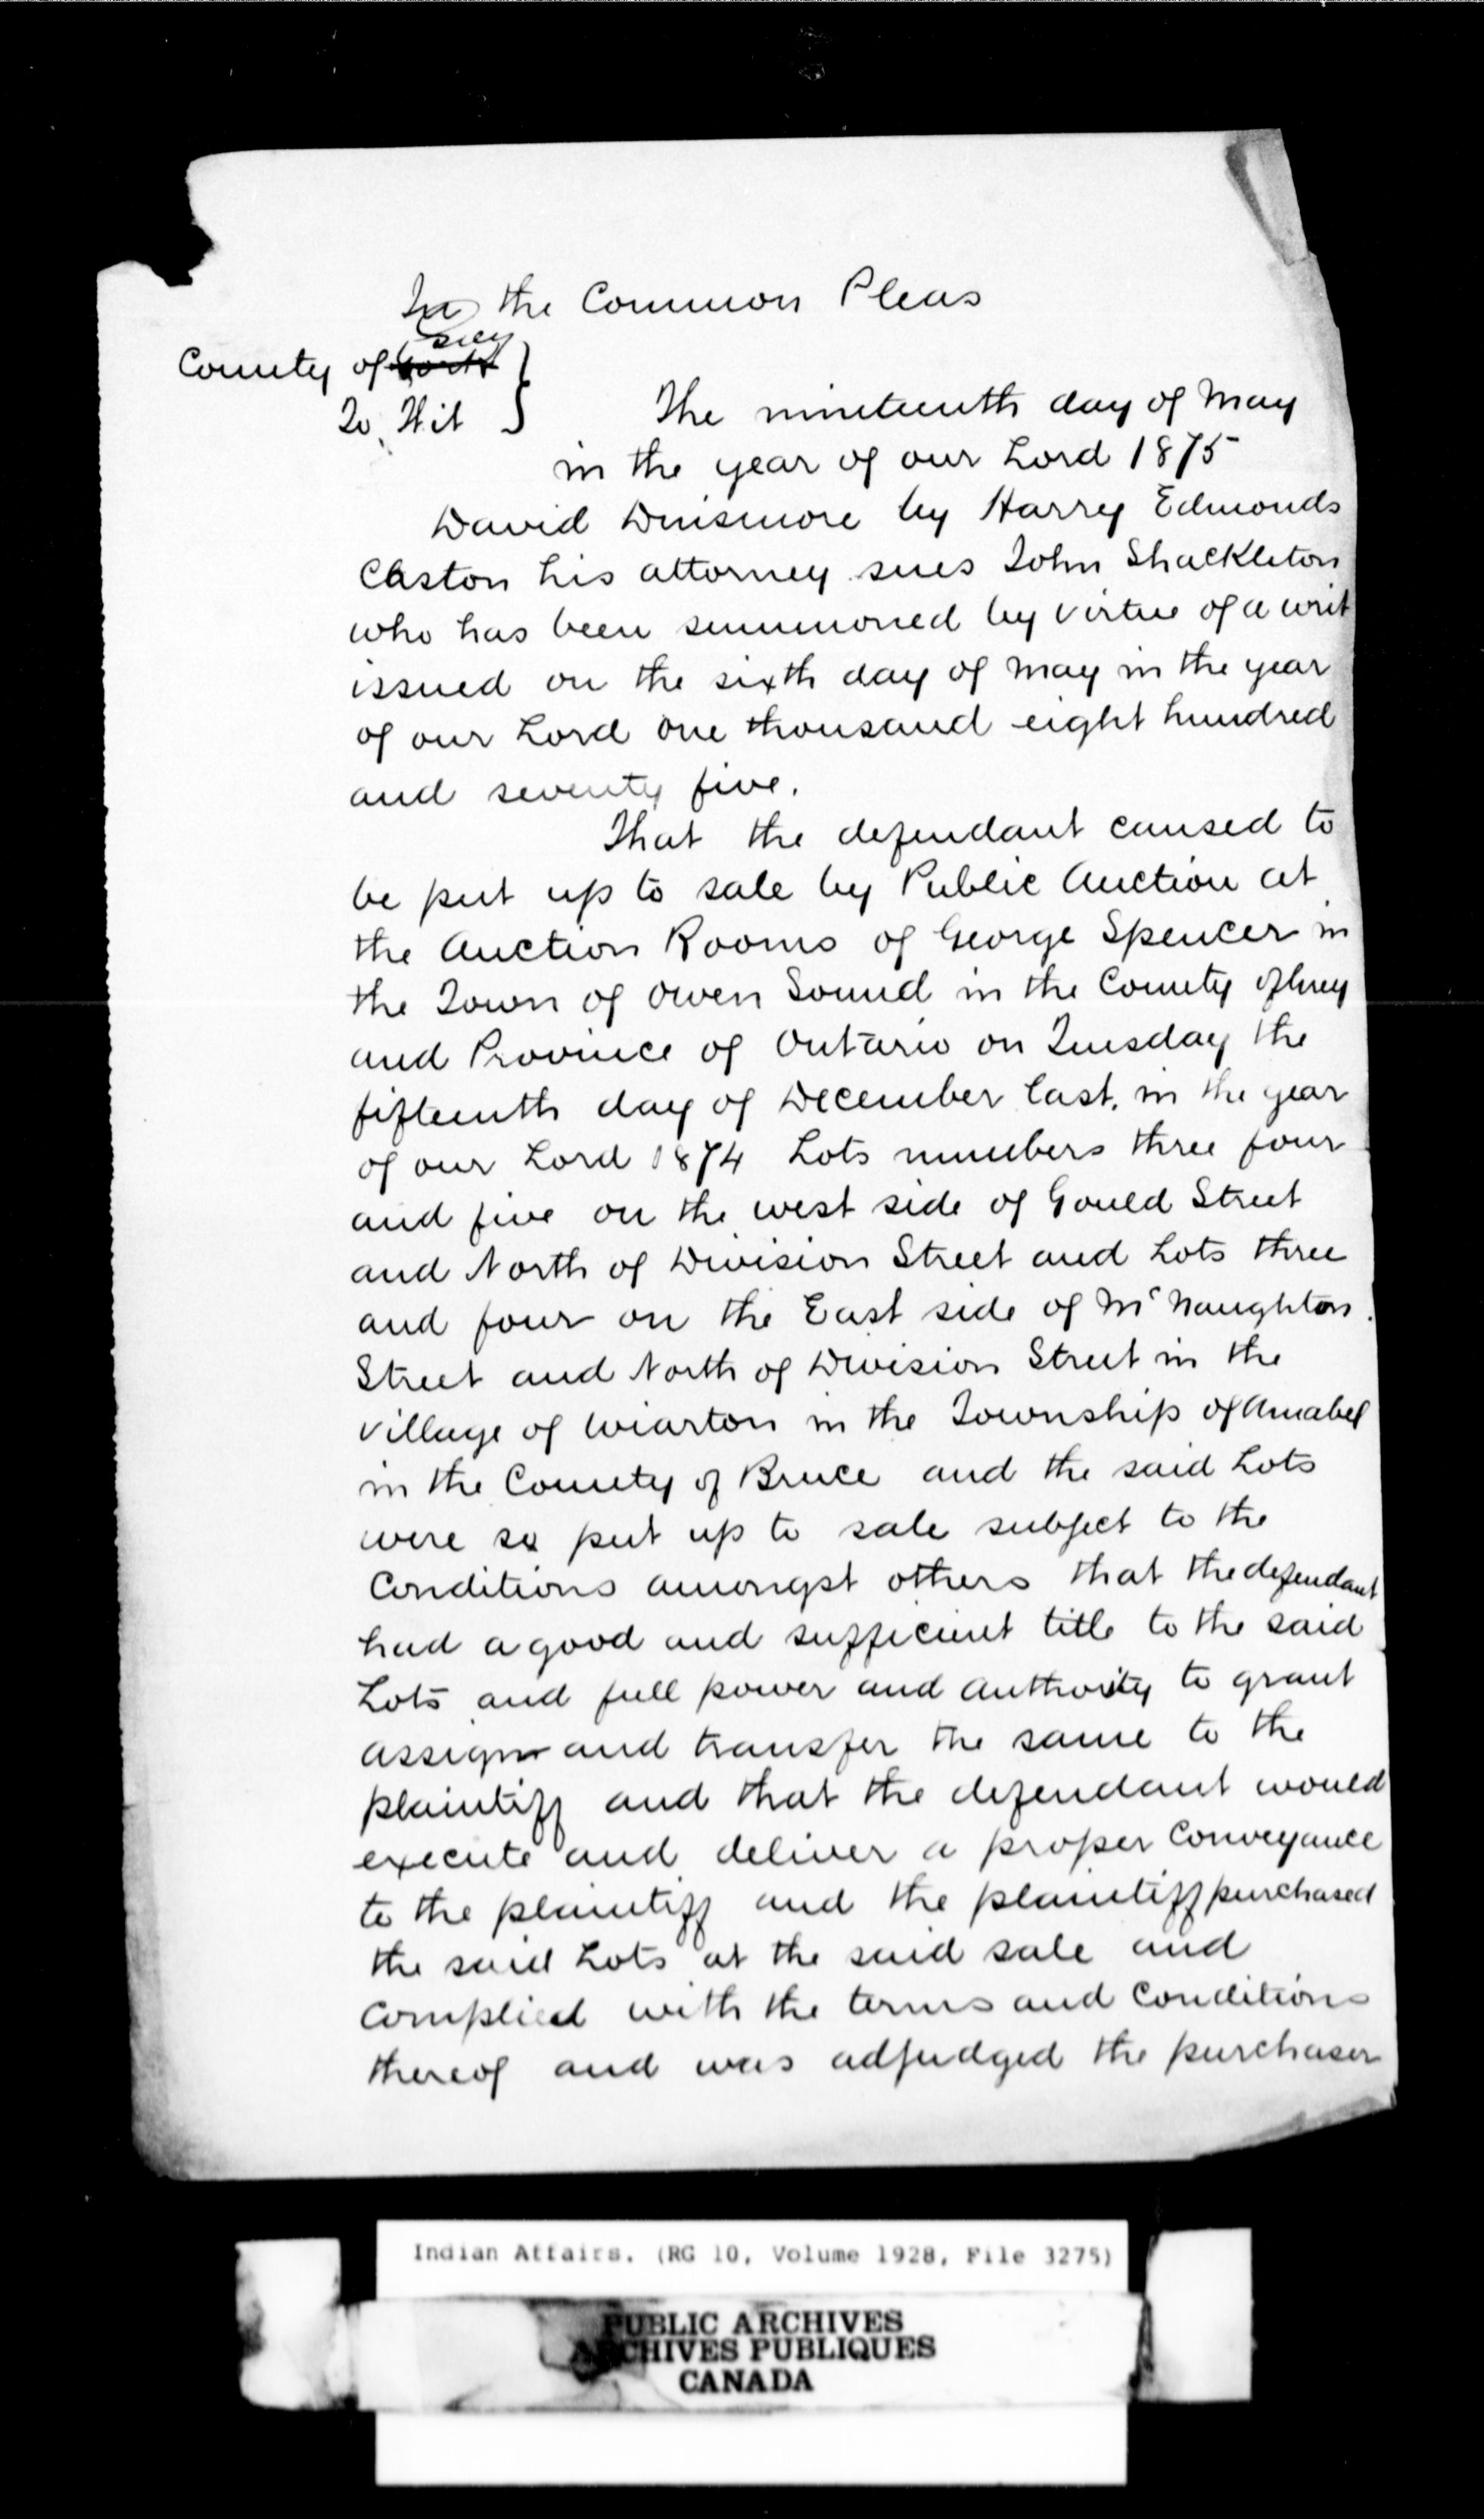 In the Common Pleas
County of York
To Wit
The nineteenth day of May
in the year of our Lord 1875
David Dinsmore by Harry Edmonds
Caston his attorney sues John Shackleton
who has been summoned by virtue of a writ
issued on the sixth day of May in the year
of our Lord one thousand eight hundred
and seventy five.
That the defendant caused to
be put up to sale by Public Auction at
the Auction Rooms of George Spencer in
the Town of Owen Sound in the County of Grey
and Province of Ontario on Tuesday the
fifteenth day of December last, in the year
of our Lord 1874 Lots numbers three four
and five on the west side of Gould Street
and North of Division Street and Lots three
and four on the East side of McNaughton
Street and North of Division Street in the
Village of Wiarton in the Township of Amabel
in the County of Bruce and the said Lots
were so put up to sale subject to the
Conditions amongst others that the defendant
had a good and sufficient title to the said
Lots and full power and authority to grant
assign and transfer the same to the
plaintiff and that the defendant would
execute and deliver a proper Conveyance
to the plaintiff and the plaintiff purchased
the said Lots at the said sale and
Complied with the terms and Conditions
thereof and was adjudged the purchaser
Indian Affairs. (RG 10, Volume 1928, File 3275)
PUBLIC ARCHIVES
ARCHIVES PUBLIQUES
CANADA